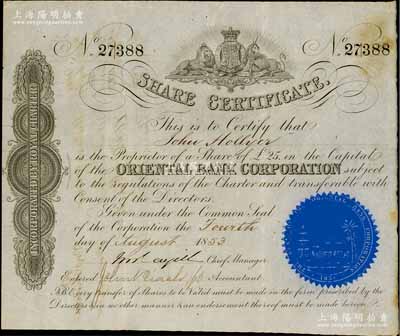 上海阳明拍卖
www.ymauction.com
No. 27388
No. 27388
SHARE CERTIFICATE.
This is to Certify that
John Hollyer
is the Proprietor of a Share of £25, in the Capital
of the ORIENTAL BANK CORPORATION subject
to the regulations of the Charter and transferable with
Consent of the Directors.
Given under the Common Seal
of the Corporation the Fourth
day of August 1853
Chief Manager.
Entered Accountant.
NB. Every transfer of Shares to be Valid must be made in the form prescribed by the
Directors in no other manner can endorsement thereof must be made herein
ORIENTAL BANK CORPORATION